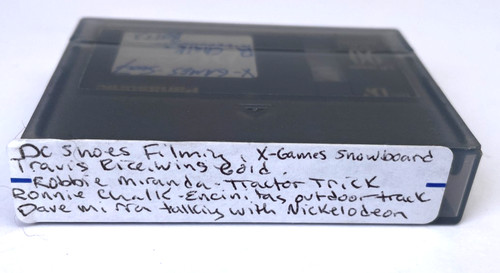 X-GAMES
DV
DC Shoes Filming, X-Games Snowboard
Travis Rice, wins Gold.
Robbie Miranda - Tractor Trick
Ronnie Chalk - Encinitas outdoor track
Dave Mirra talking with Nickelodeon